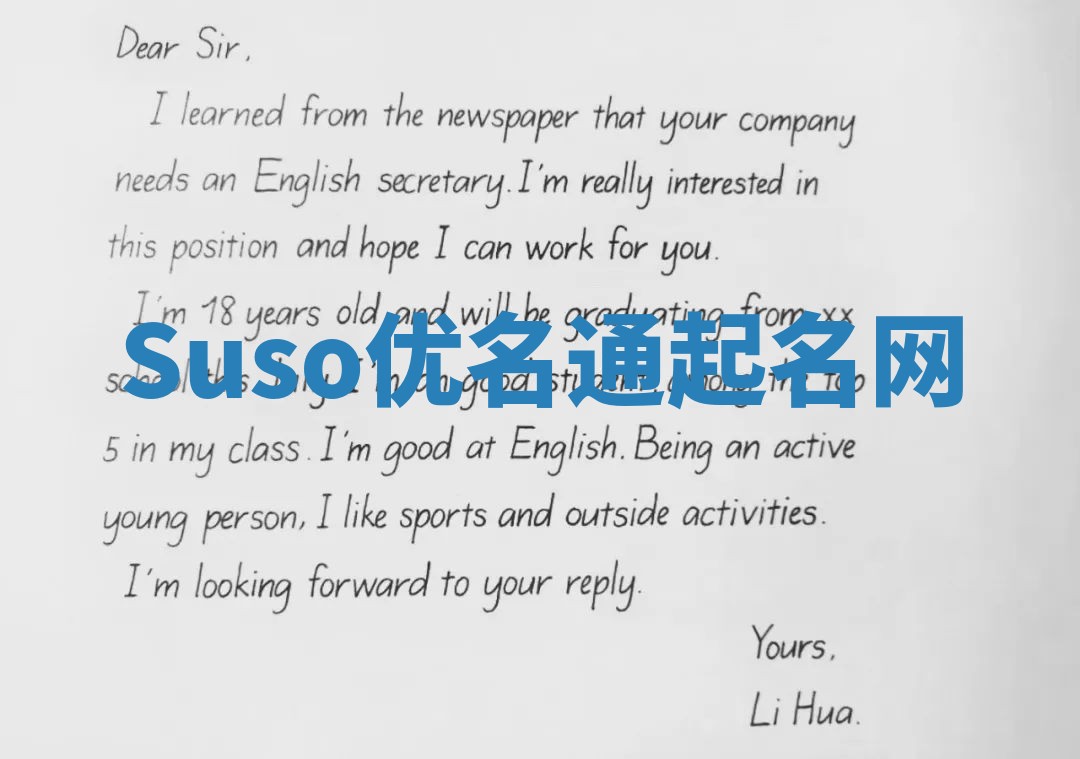 Dear Sir,
I learned from the newspaper that your company
needs an English secretary. I'm really interested in
this position and hope I can work for you.
I'm 18 years old and will be graduating from xx
Suso优名通起名网
school this July. I'm an good student among the top
5 in my class. I'm good at English. Being an active
young person, I like sports and outside activities.
I'm looking forward to your reply.
Yours,
Li Hua.